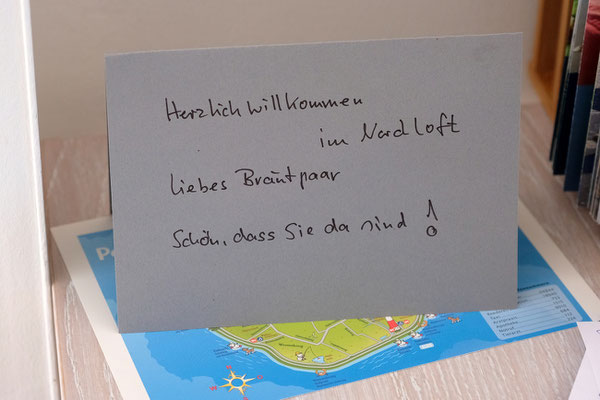 Herzlich Willkommen
im Nordloft
liebes Brautpaar
Schön, dass Sie da sind!